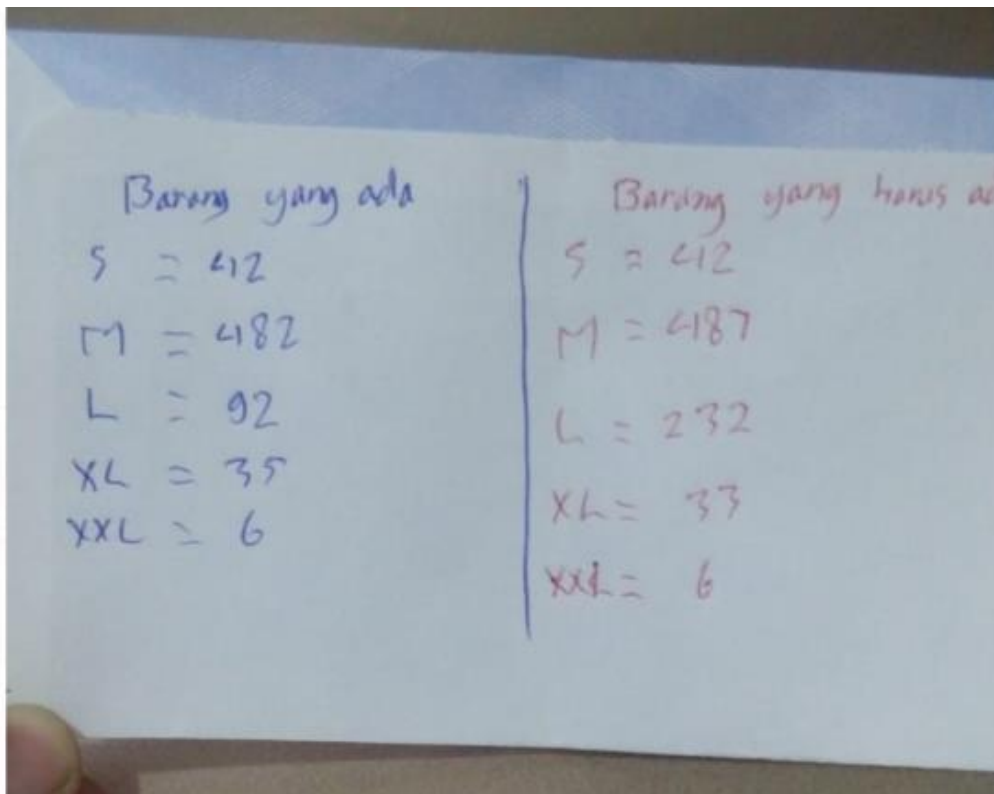 Barang yang ada
S = 42
M = 482
L = 92
XL = 35
XXL = 6
Barang yang harus ad
S = 42
M = 487
L = 232
XL = 33
XXL = 6